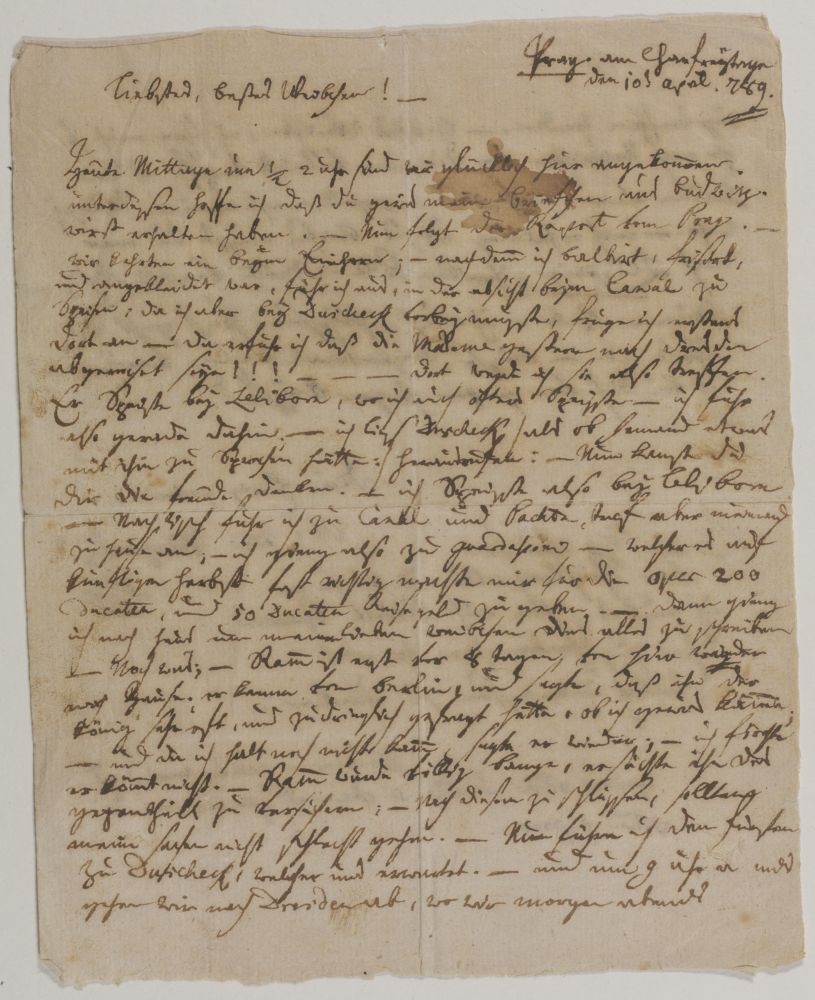 Prag am Charfreytage
den 10t April. 789.
Liebstes, bestes Weibchen! —
Heute Mittags um 1/2 2 uhr sind wir glücklich hier angekommen.
unterdessen hoffe ich daß du gewis mein briefchen aus budwitz
wirst erhalten haben. — Nun folgt der Raport von Prag. —
wir kehrten ein beym Einhorn; — nachdemm ich balbirt, frisirt,
und angekleidet war, fuhr ich aus, in der absicht beym Canal zu
Speisen; da ich aber bey Duscheck vorbey musste, frug ich erstens
dort an — da erfuhr ich daß die Madame gestern nach dresden
abgereiset seye!!! — — — dort werde ich sie also treffen.
Er Speiste bey Leliborn, wo ich auch öfters Speiste — ich fuhr
also gerade dahin. — ich lies Duscheck /:als ob Jemand etwas
mit ihm zu Sprechen hätte:/ herausrufen: — Nun kanst du
dir die freude denken. — ich Speiste also bey Leliborn
— Nach tisch fuhr ich zu Canal und Pachta, traf aber niemand
zu hause an; — ich gieng also zu guardassoni — welcher es auf
künftigen Herbst fast richtig machte mir für die oper 200
Ducaten, und 50 Ducaten Reisegeld zu geben. — dann gieng
ich nach haus um meinem lieben weibchen dies alles zu schreiben
— Noch was; — Ramm ist erst vor 8 tagen von hier wieder
nach Hause. er kamm von berlin und sagte, daß ihn der
König sehr oft, und zudringlich gefragt hätte, ob ich gewis käme,
— und da ich halt noch nicht kam, sagte er wieder; — ich fürchte
er kömmt nicht. — Ramm wurde völlig bange, er suchte ihn des
gegentheil zu versichern; — Nach diesem zu schlüssen, sollten
meine Sachen nicht schlecht gehen. — Nun führe ich den fürsten
zu Duscheck, welcher uns erwartet. — und um 9 uhr a nds
gehen wir nach Dresden ab, wo wir morgen abends